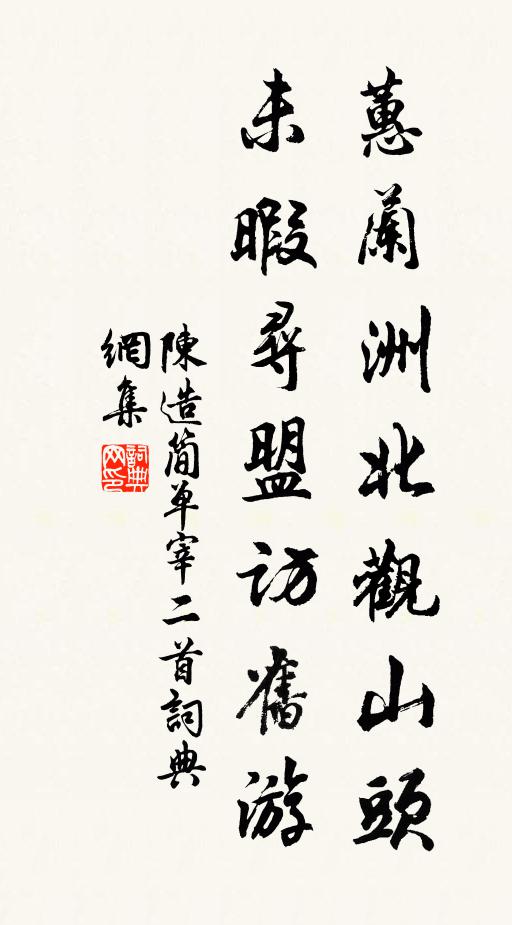 蕙蘭洲北觀山頭
未暇尋盟訪舊游
陳造简单宰二首詞典
網集
詞典网印